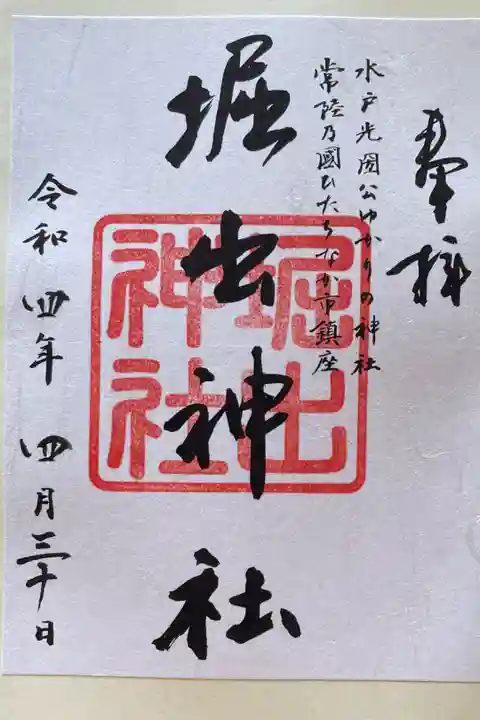 奉拝
水戸光圀公ゆかりの神社
常陸乃國ひたちなか市鎮座
堀出神社
堀出
神社
令和四年四月三十日